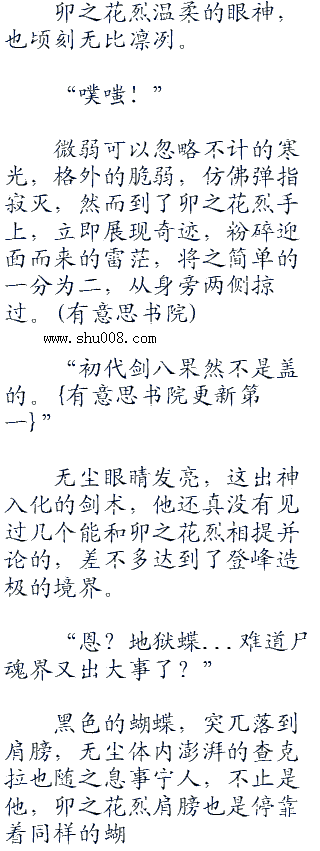 卯之花烈温柔的眼神，
也顷刻无比凛冽。
“噗嗤！”
微弱可以忽略不计的寒
光，格外的脆弱，仿佛弹指
寂灭，然而到了卯之花烈手
上，立即展现奇迹，粉碎迎
面而来的雷茫，将之简单的
一分为二，从身旁两侧掠
过。(有意思书院)
www.shu008.com
“初代剑八果然不是盖
的。{有意思书院更新第
一}”
无尘眼睛发亮，这出神
入化的剑术，他还真没有见
过几个能和卯之花烈相提并
论的，差不多达到了登峰造
极的境界。
“恩？地狱蝶...难道尸
魂界又出大事了？”
黑色的蝴蝶，突兀落到
肩膀，无尘体内澎湃的查克
拉也随之息事宁人，不止是
他，卯之花烈肩膀也是停靠
着同样的蝴